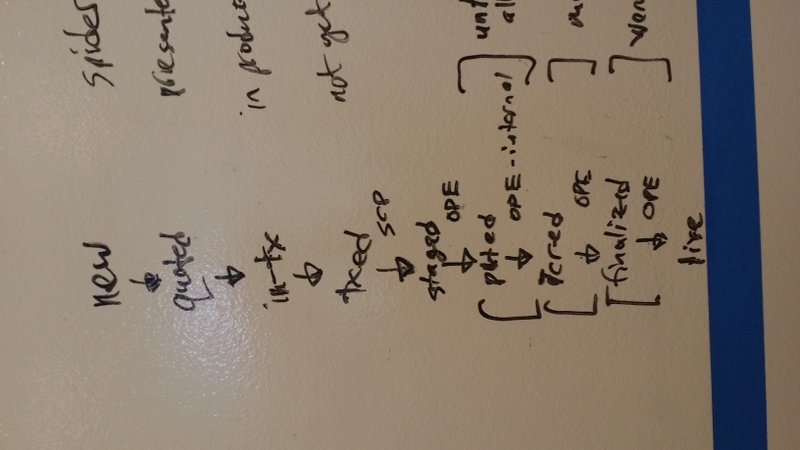 new
quoted
in-tx
txed
scp
staged
OPE
OPE-internal
OPE
finalized
OPE
live
spider
presente
in produc
not yet